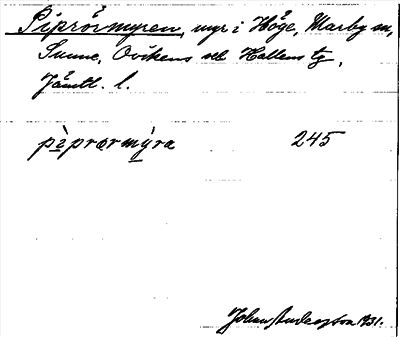 Piprörmyren, myr i Höge, Marby sn,
Sunne, Ovikens o Hallens tg,
Jämtl. l.
pìprœrmýra 245
Johan Anderson 1931.